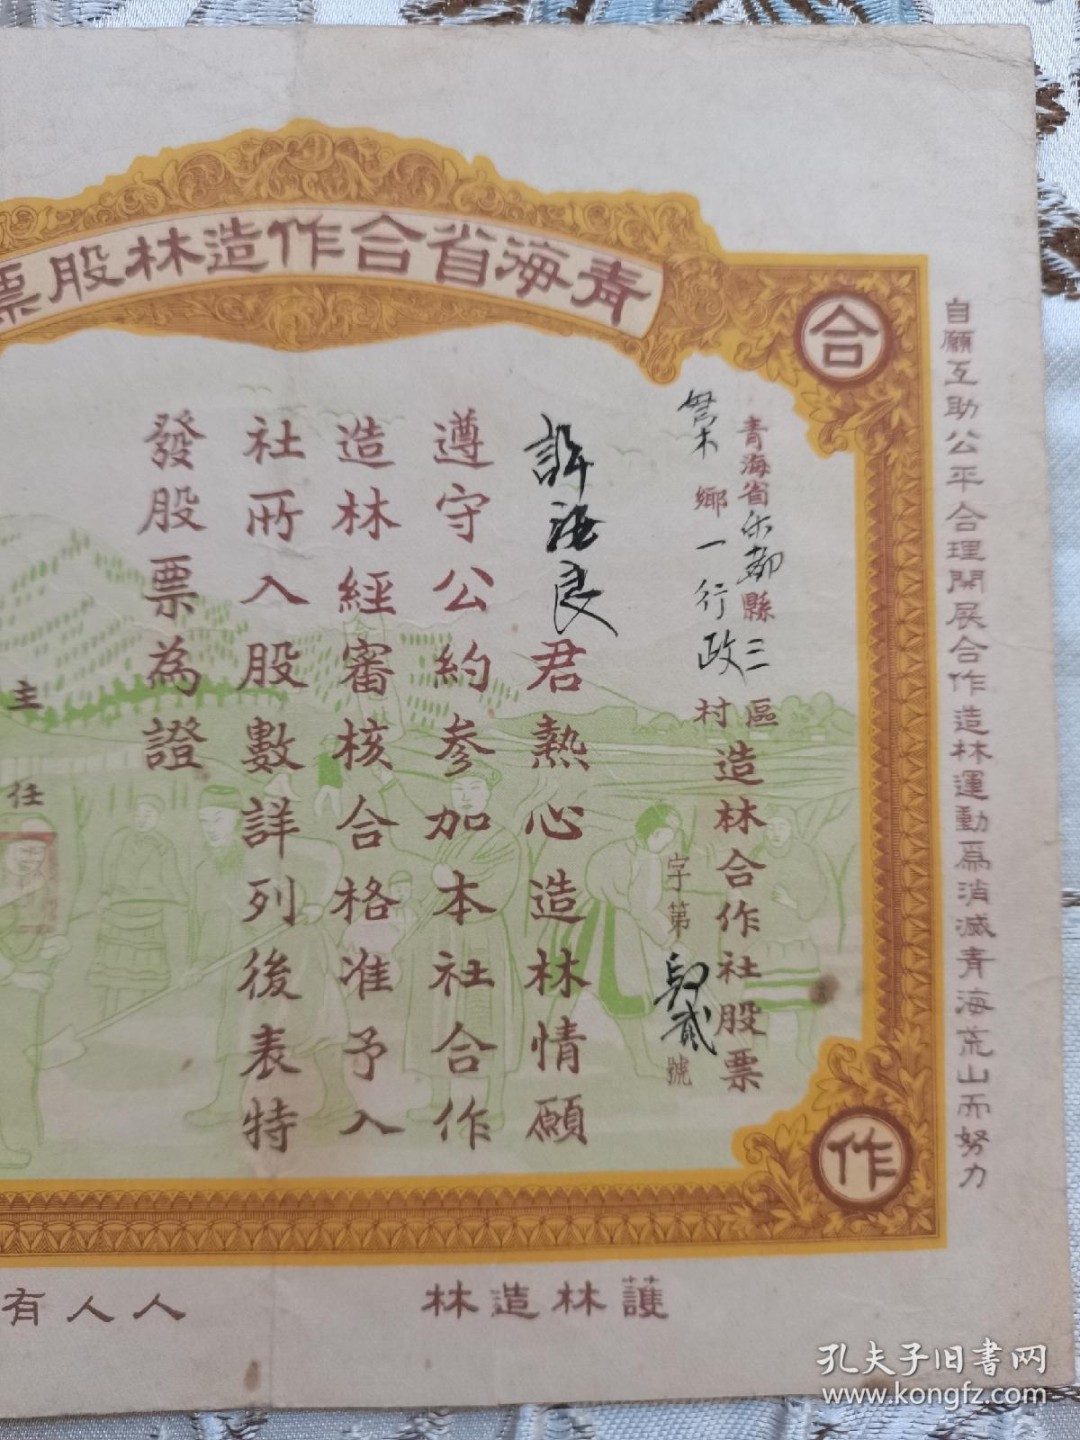 青海省合作造林股票
合
作
自願互助公平合理開展合作造林運動爲消滅青海荒山而努力
青海省乐都縣三區
鄉一行政村
造林合作社股票
字第 貳號
許海良君熱心造林情願
遵守公約參加本社合作
造林經審核合格准予入
社所入股數詳列後表特
發股票為證
主任
護林造林
人人有
孔夫子旧書网
www.kongfz.com